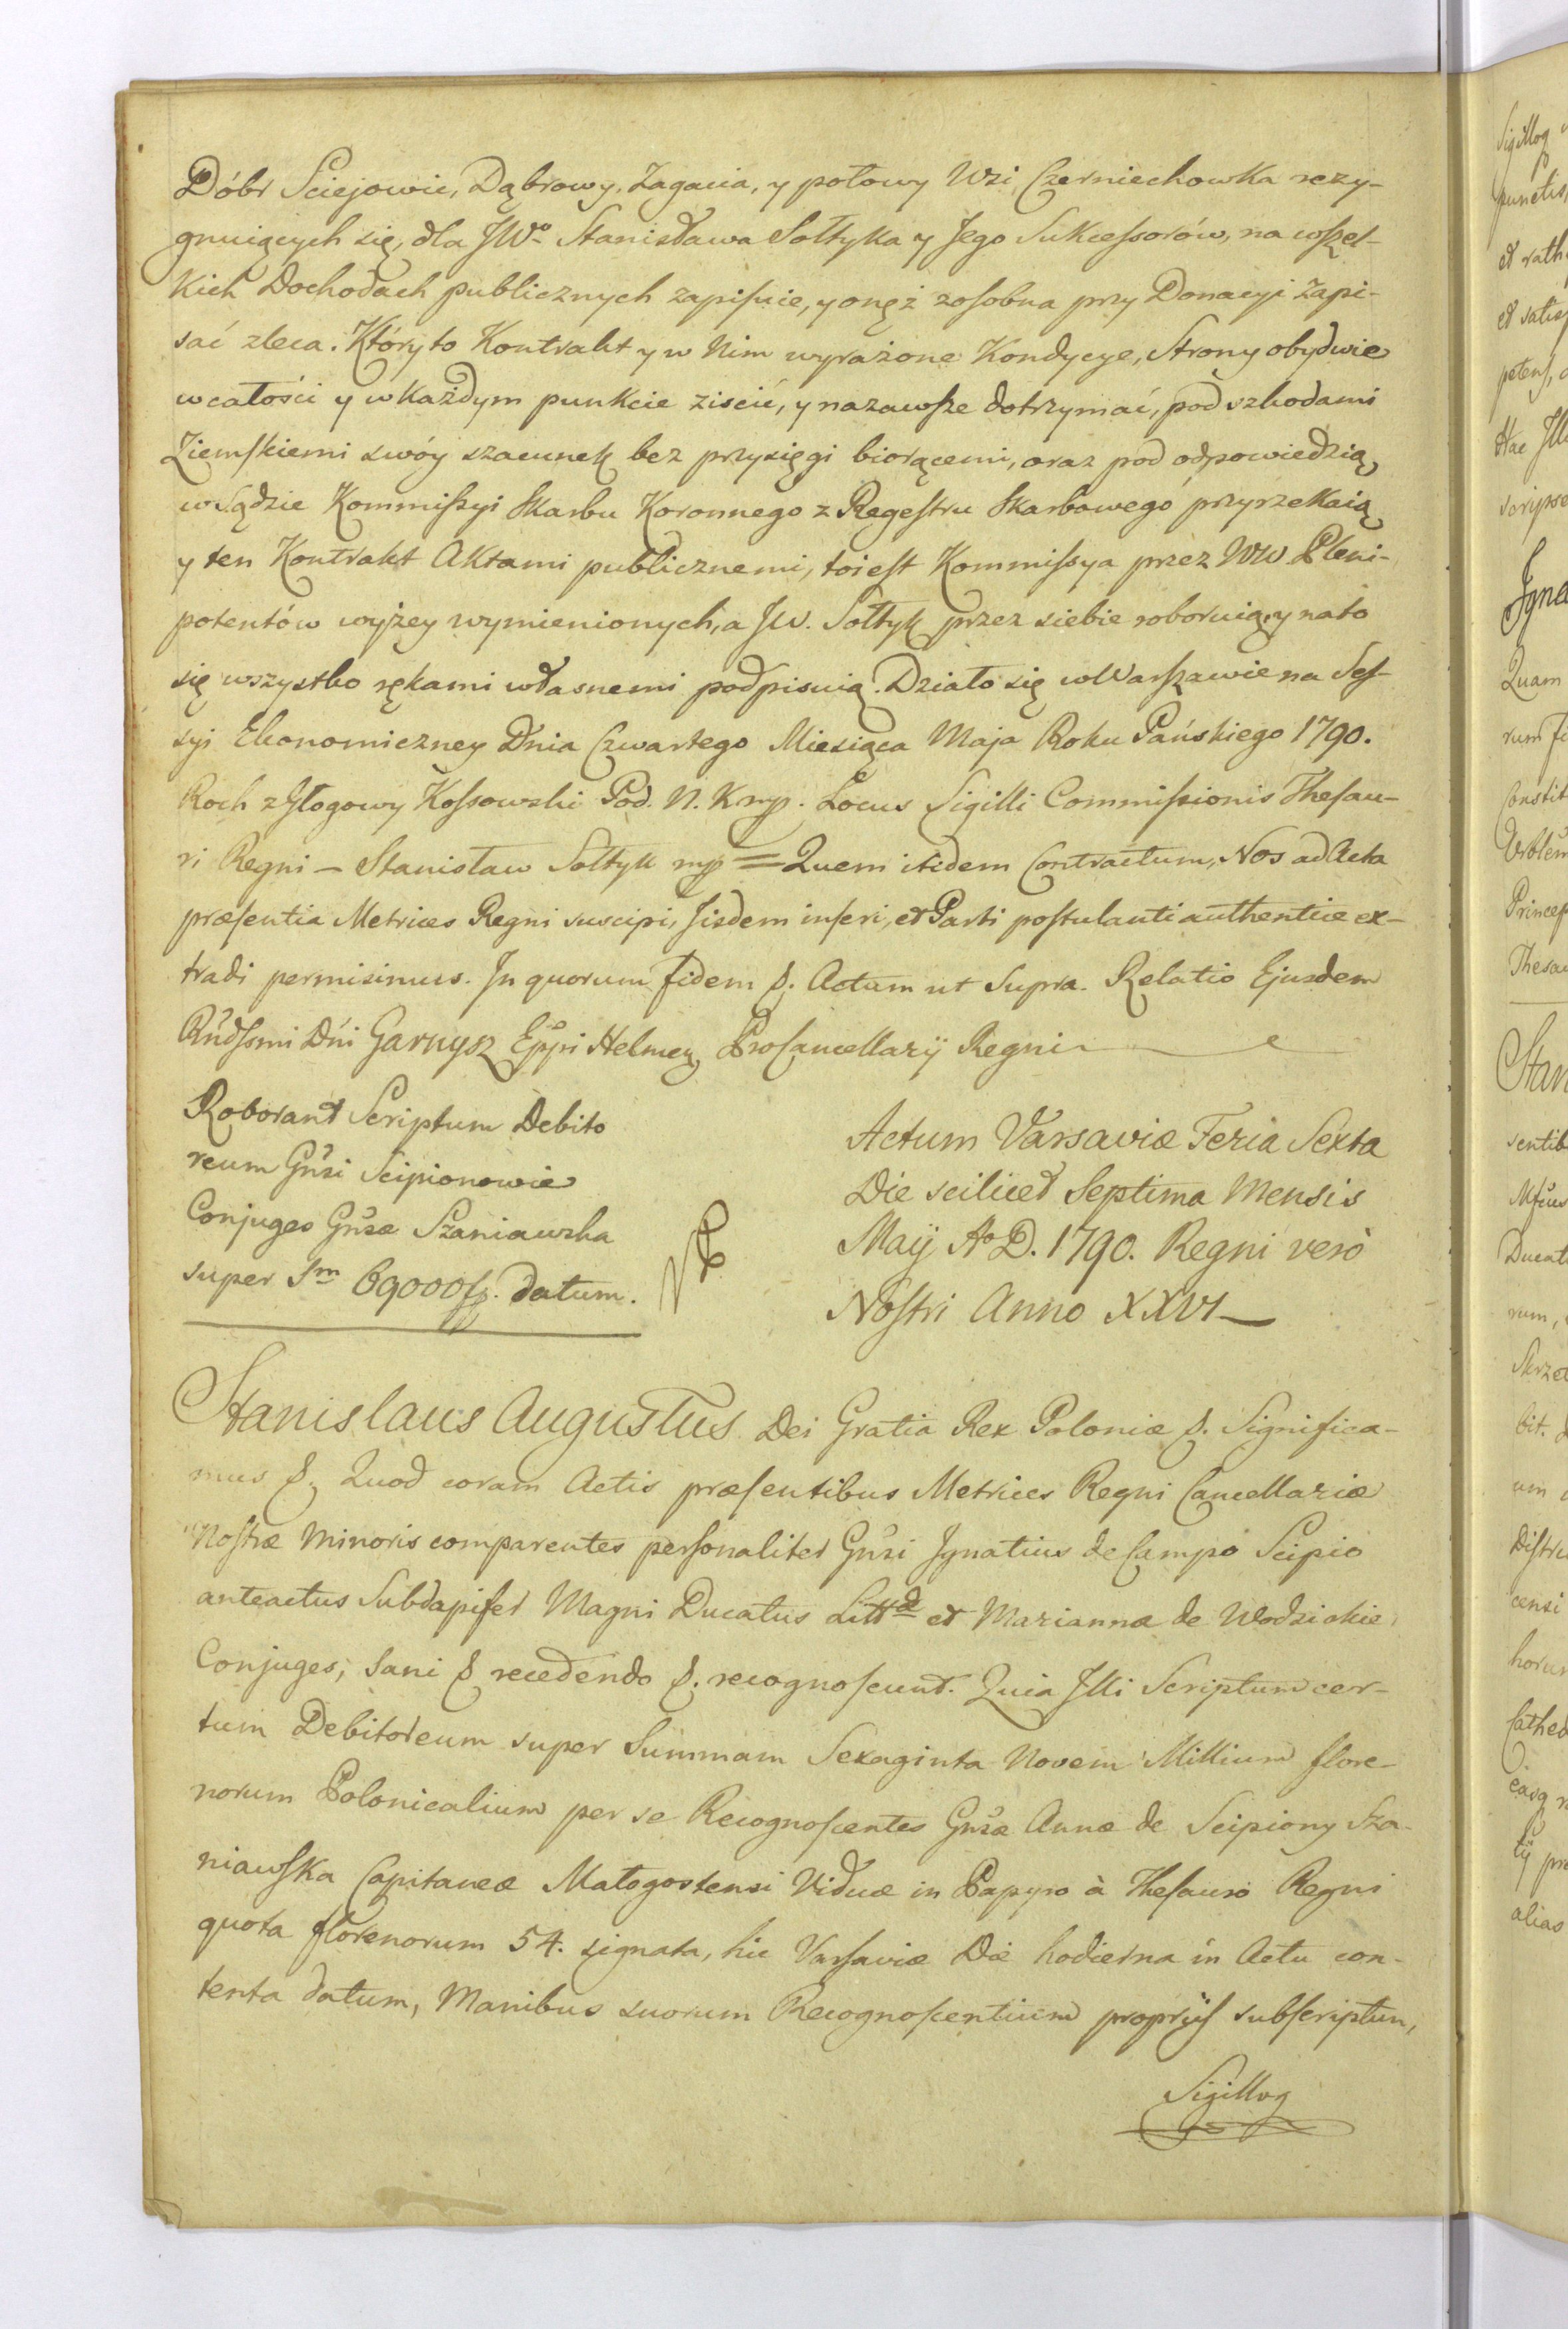 Dóbr Sciejowic, Dąbrowy, Zagacia, y połowy Wsi Czerniechowka rezy-
gnuiących się, dla JWo Stanisława Sołtyka y Jego Sukcessorów, na wszel-
kich Dochodach publicznych zapisuie, y onęż zosobna przy Donacyi zapi-
sać zleca. Który to Kontrakt y w Nim wyrażone Kondycye, Strony obydwie
w całości y w każdym punkcie ziścić, y nazawsze dotrzymać, pod szkodami
Ziemskiemi swóy szacunek bez przysięgi biorącemi, oraz pod odpowiedzią
w Sądzie Kommissyi Skarbu Koronnego z Regestru Skarbowego przyrzekaią
y ten Kontrakt Aktami publicznemi, toiest Kommissya przez WW Pleni-
potentów wyżey wymienionych, a JW. Sołtyk przez siebie roboruią, y na to
się wszystko rękami własnemi podpisuią. Działo się w Warszawie na Ses-
syi Ekonomiczney Dnia Czwartego Miesiąca Maja Roku Pańskiego 1790.
Roch z Głogowy Kossowski Pod. N. K mp. Locus Sigilli Commissionis Thesau-
ri Regni – Stanisław Sołtyk mp = Quem itidem Contractum, Nos ad Acta
præsentia Metrices Regni suscipi, Jisdem inseri, et Parti postulanti authentice ex-
tradi permisimus. In quorum fidem &. Actum ut Supra. Relatio Ejusdem
Rńdssmi Dńi Garnysz Eppi Helmen, ProCancellarÿ Regni
Roborant Scriptum Debito
reum Gńsi Scipionowie
Conjuges Gńsæ Szaniawska
super Sm 69000 fp. datum.
Actum Varsaviæ Feria Sexta
Die scilicet Septima Mensis
Maÿ Ao D. 1790. Regni verò
Nostri Anno XXVI
Stanislaus Augustus Dei Gratia Rex Poloniæ &. Significa-
mus &. Quod coram Actis præsentibus Metrices Regni Cancellariæ
Nostræ Minoris comparentes personaliter Gńsi Ignatius de Campo Scipio
anteactus Subdapifer Magni Ducatus Littdæ et Marianna de Wodzickie
Conjuges, Sani & recedendo &. recognoscunt. Quia Illi Scriptum cer-
tum Debitoreum super Summam Sexaginta Novem Millium flore-
norum Polonicalium per se Recognoscentes Gńsæ Annæ de Scipiony Sza-
niawska Capitaneæ Małogostensi Viduæ in Papyro à Thesauro Regni
quota florenorum 54. signata, hic Varsaviæ Die hodierna in Actu con-
tenta datum, Manibus suorum Recognoscentium proprijs subscriptum,
Sigillog